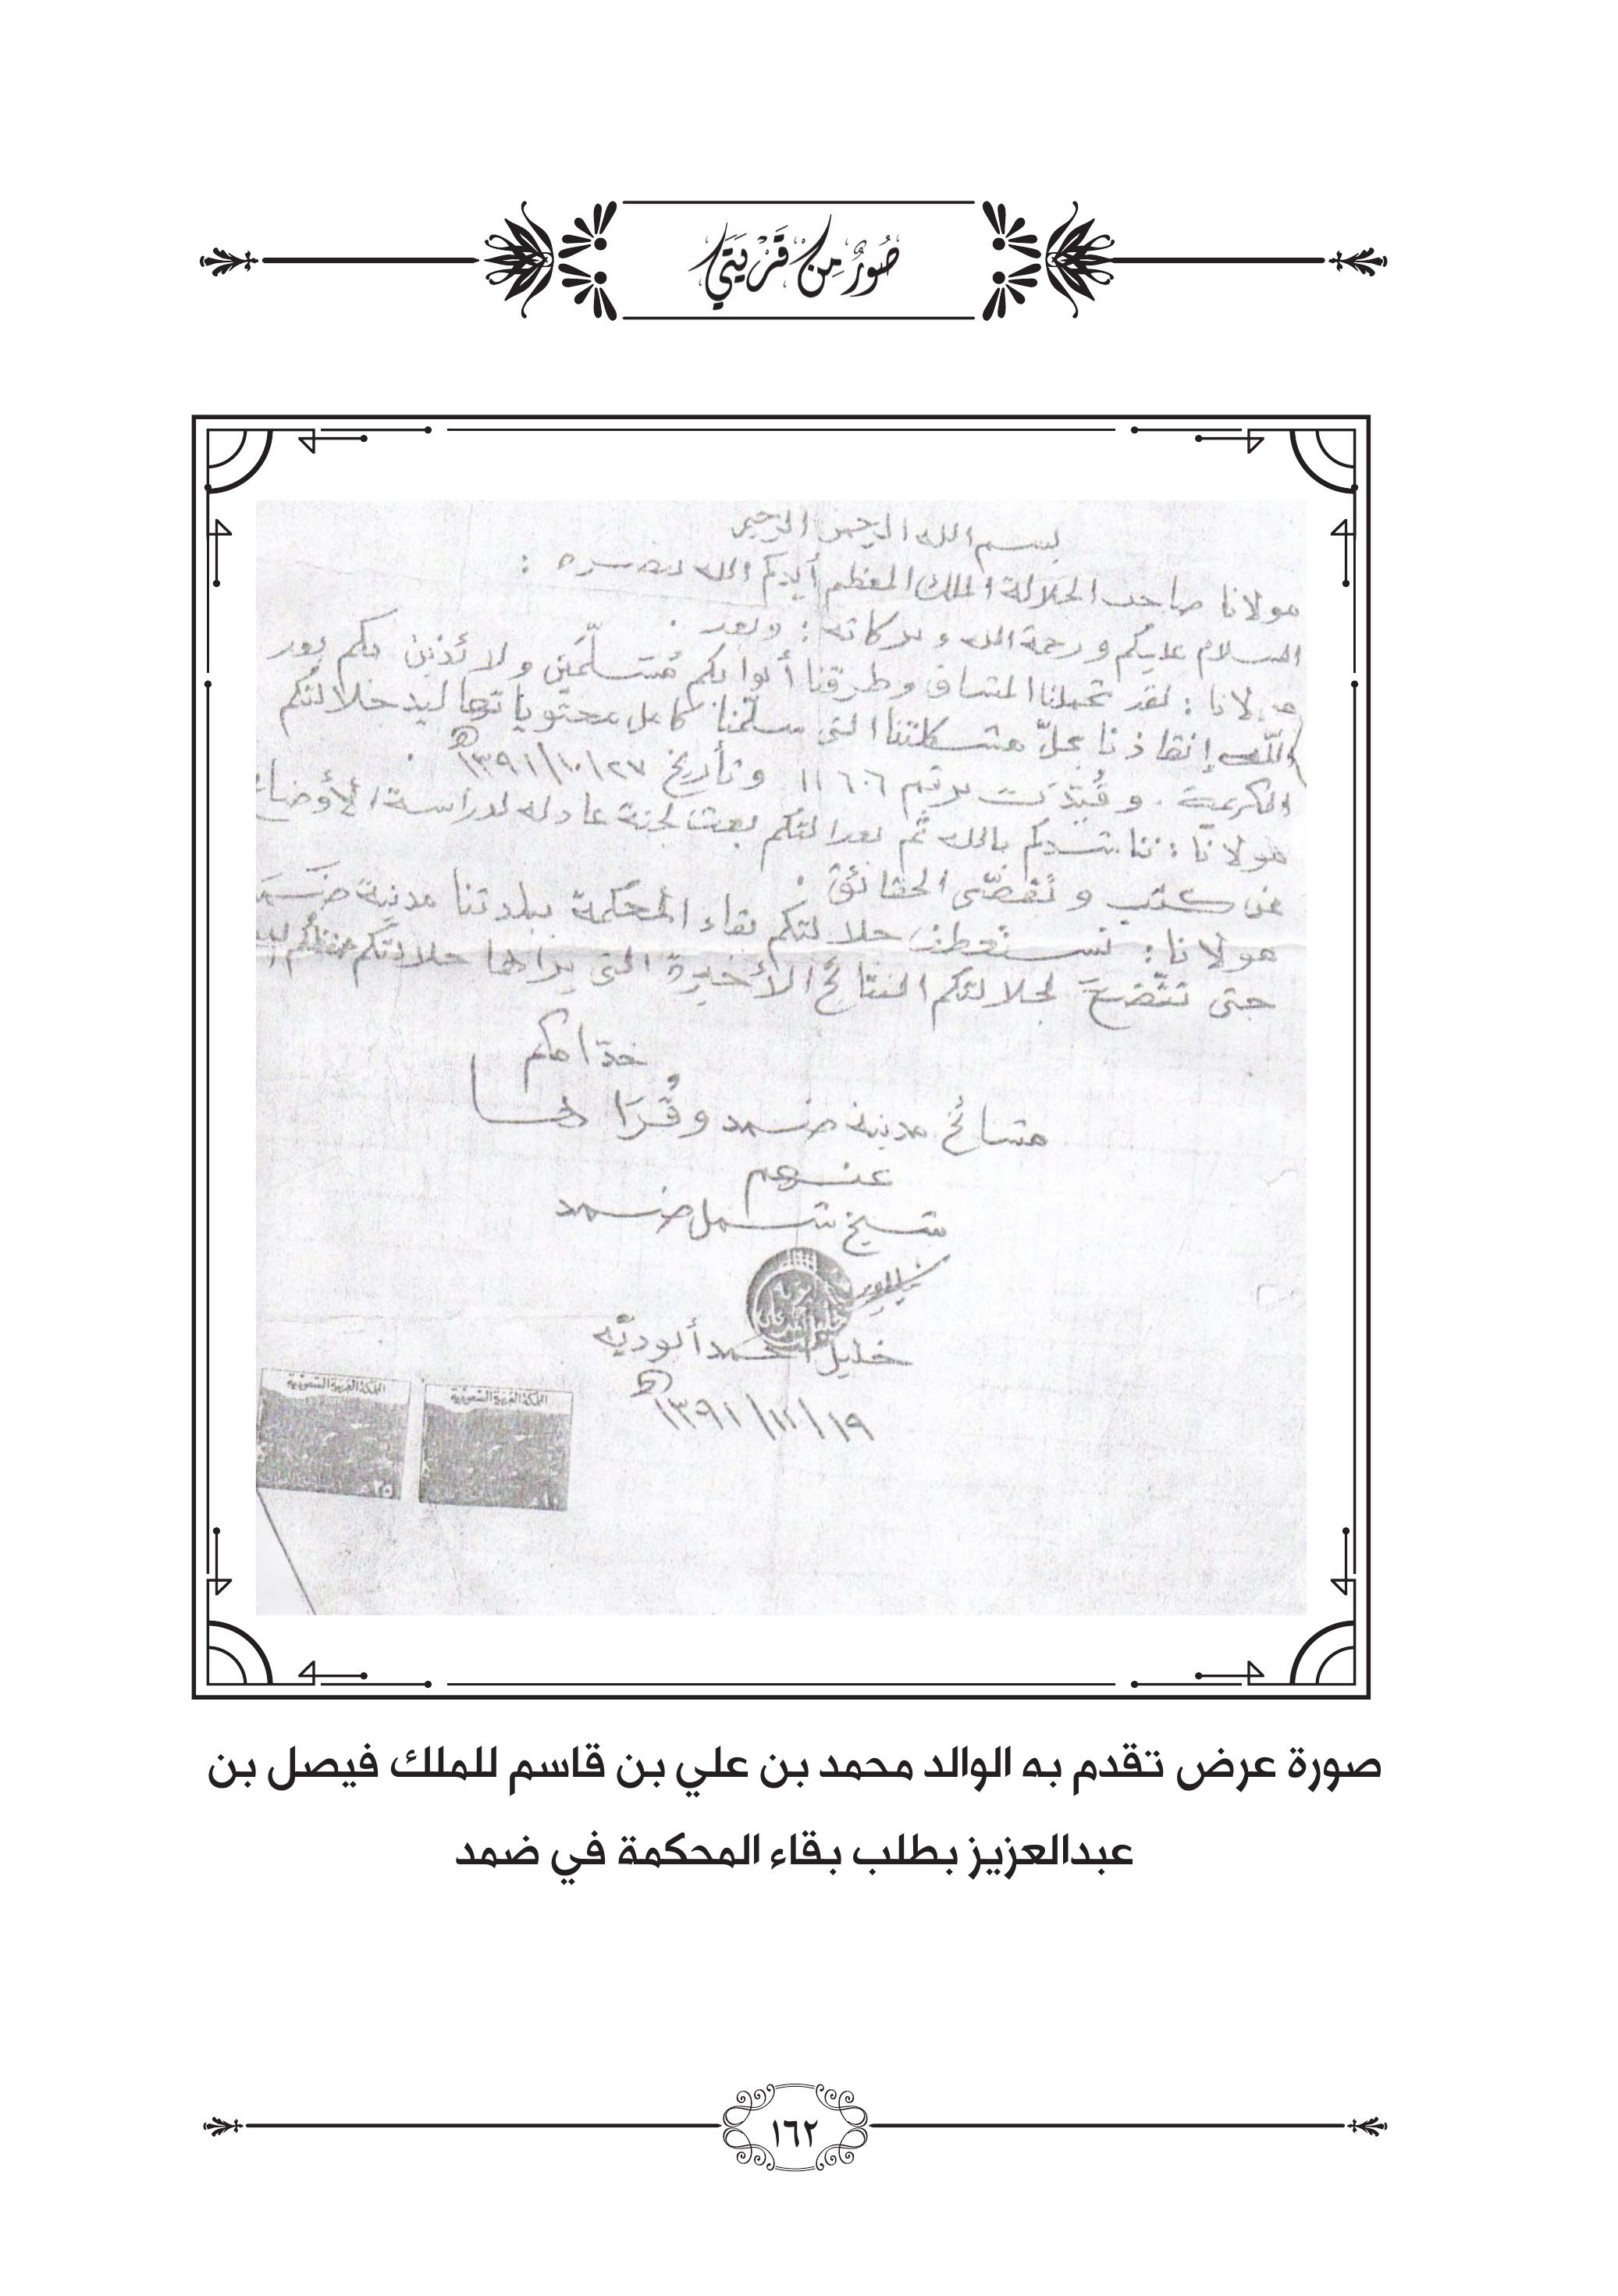 صُورٌ مِنْ قَرْيَتِي
بسم الله الرحمن الرحيم
مولانا صاحب الجلالة الملك المعظم أيدكم الله بنصره :
السلام عليكم ورحمة الله وبركاته : وبعد .
مولانا : لقد تحملنا المشاق وطرقنا أبوابكم مُتسلّمين ولائذين بكم بعد
الله إنقاذنا بحلّ مشكلتنا التى سلّمنا كامل محتوياتها ليد جلالتكم
الكريمة . وقُيّدَت برقم ١١٦٠٦ وتأريخ ٢٧/١٠/١٣٩١هـ .
مولانا : نناشدكم بالله ثم بعدالتكم بعث لجنة عادله لدراسة الأوضاع
عن كثب وتقصّى الحقائق .
مولانا : نستعطف جلالتكم بقاء المحكمة ببلدتنا مدينة ضَمَد
حتى تتّضحَ لجلالتكم النتائج الأخيرة التى يراها جلالتكم
خدّامكم
مشائخ مدينة ضمد وقُرَاها
عنهم
شيخ شمل ضمد
خليل أحمد أبوديّه
١٩/١١/١٣٩١هـ
المملكة العربية السعودية
المملكة العربية السعودية
٢٥
صورة عرض تقدم به الوالد محمد بن علي بن قاسم للملك فيصل بن
عبدالعزيز بطلب بقاء المحكمة في ضمد
١٦٢